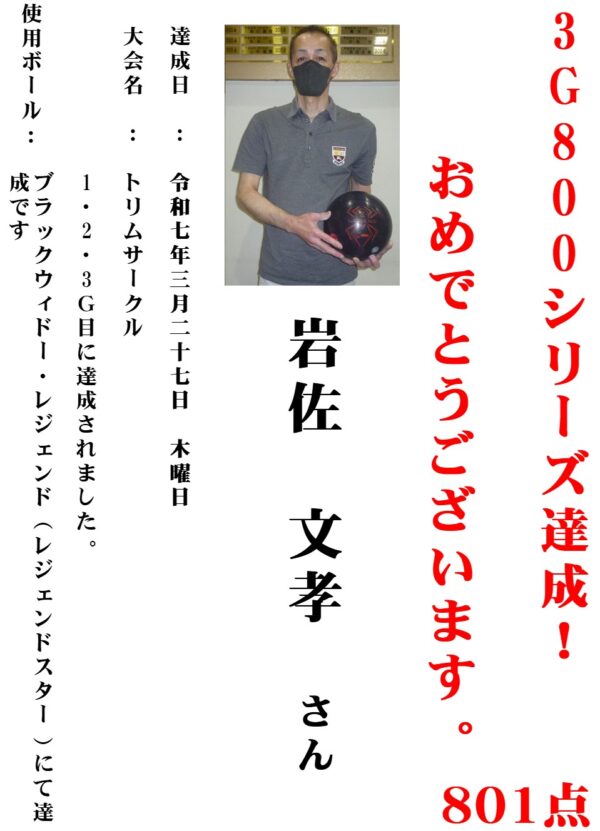 3G800シリーズ達成！
おめでとうございます。
801点
岩佐　文孝　さん
達成日　：　令和七年三月二十七日　木曜日
大会名　：　トリムサークル
1・2・3G目に達成されました。
使用ボール：　ブラックウィドー・レジェンド（レジェンドスター）にて達
成です